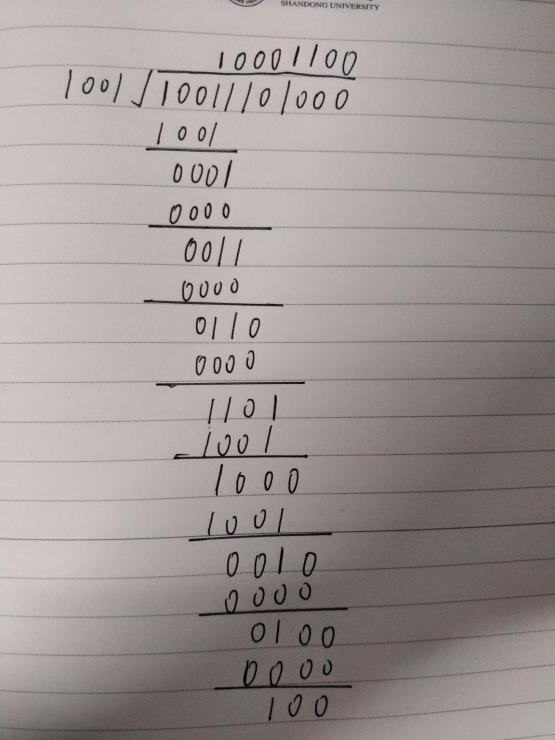 SHANDONG UNIVERSITY
10001100
1001√10011101000
1001
0001
0000
0011
0000
0110
0000
1101
-1001
1000
1001
0010
0000
0100
0000
100